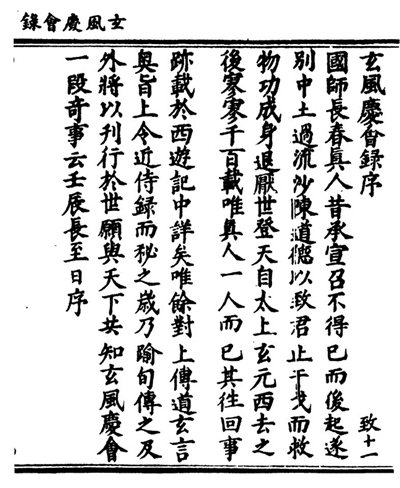 玄風慶會錄
玄風慶會錄序
致十一
國師長春真人昔承宣召不得已而後起遂
別中土過流沙陳道德以致君止干戈而救
物功成身退厭世登天自太上玄元西去之
後寥寥千百載唯真人一人而已其往回事
跡載於西遊記中詳矣唯餘對上傳道玄言
奧旨上令近侍錄而秘之歲乃踰旬傳之及
外將以刊行於世願與天下共知玄風慶會
一段奇事云壬辰長至日序